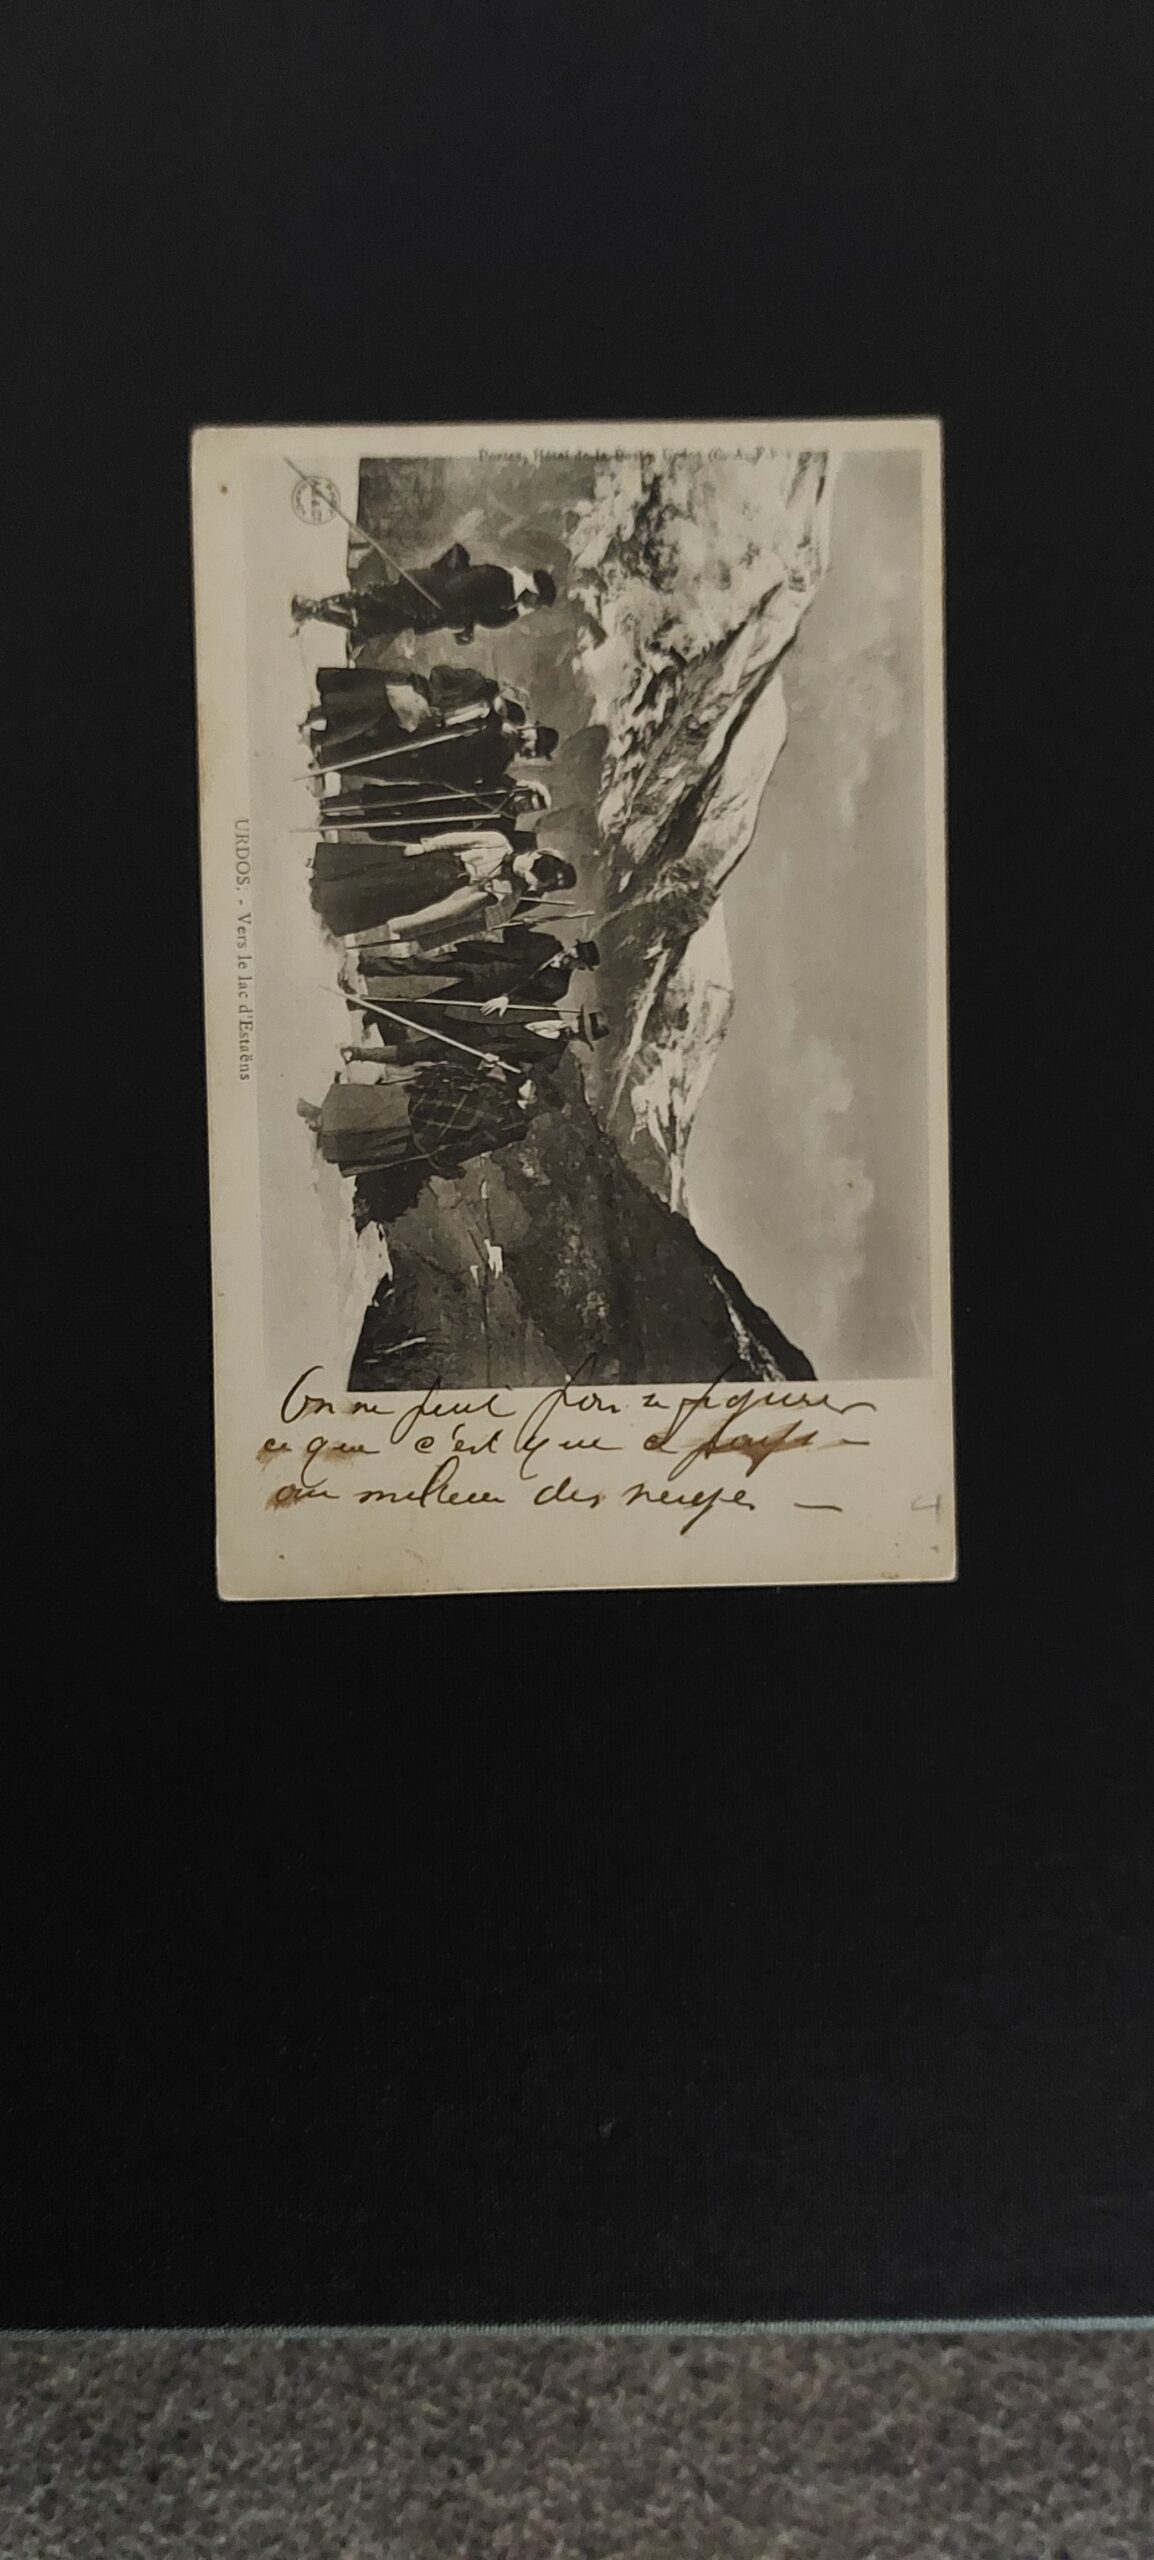 Portes, Hôtel de la Poste, Urdos (C. A. F.)
URDOS. - Vers le lac d'Estaëns
On ne peut pas se figurer
ce que c'est que ce pays -
au milieu des neiges —
4